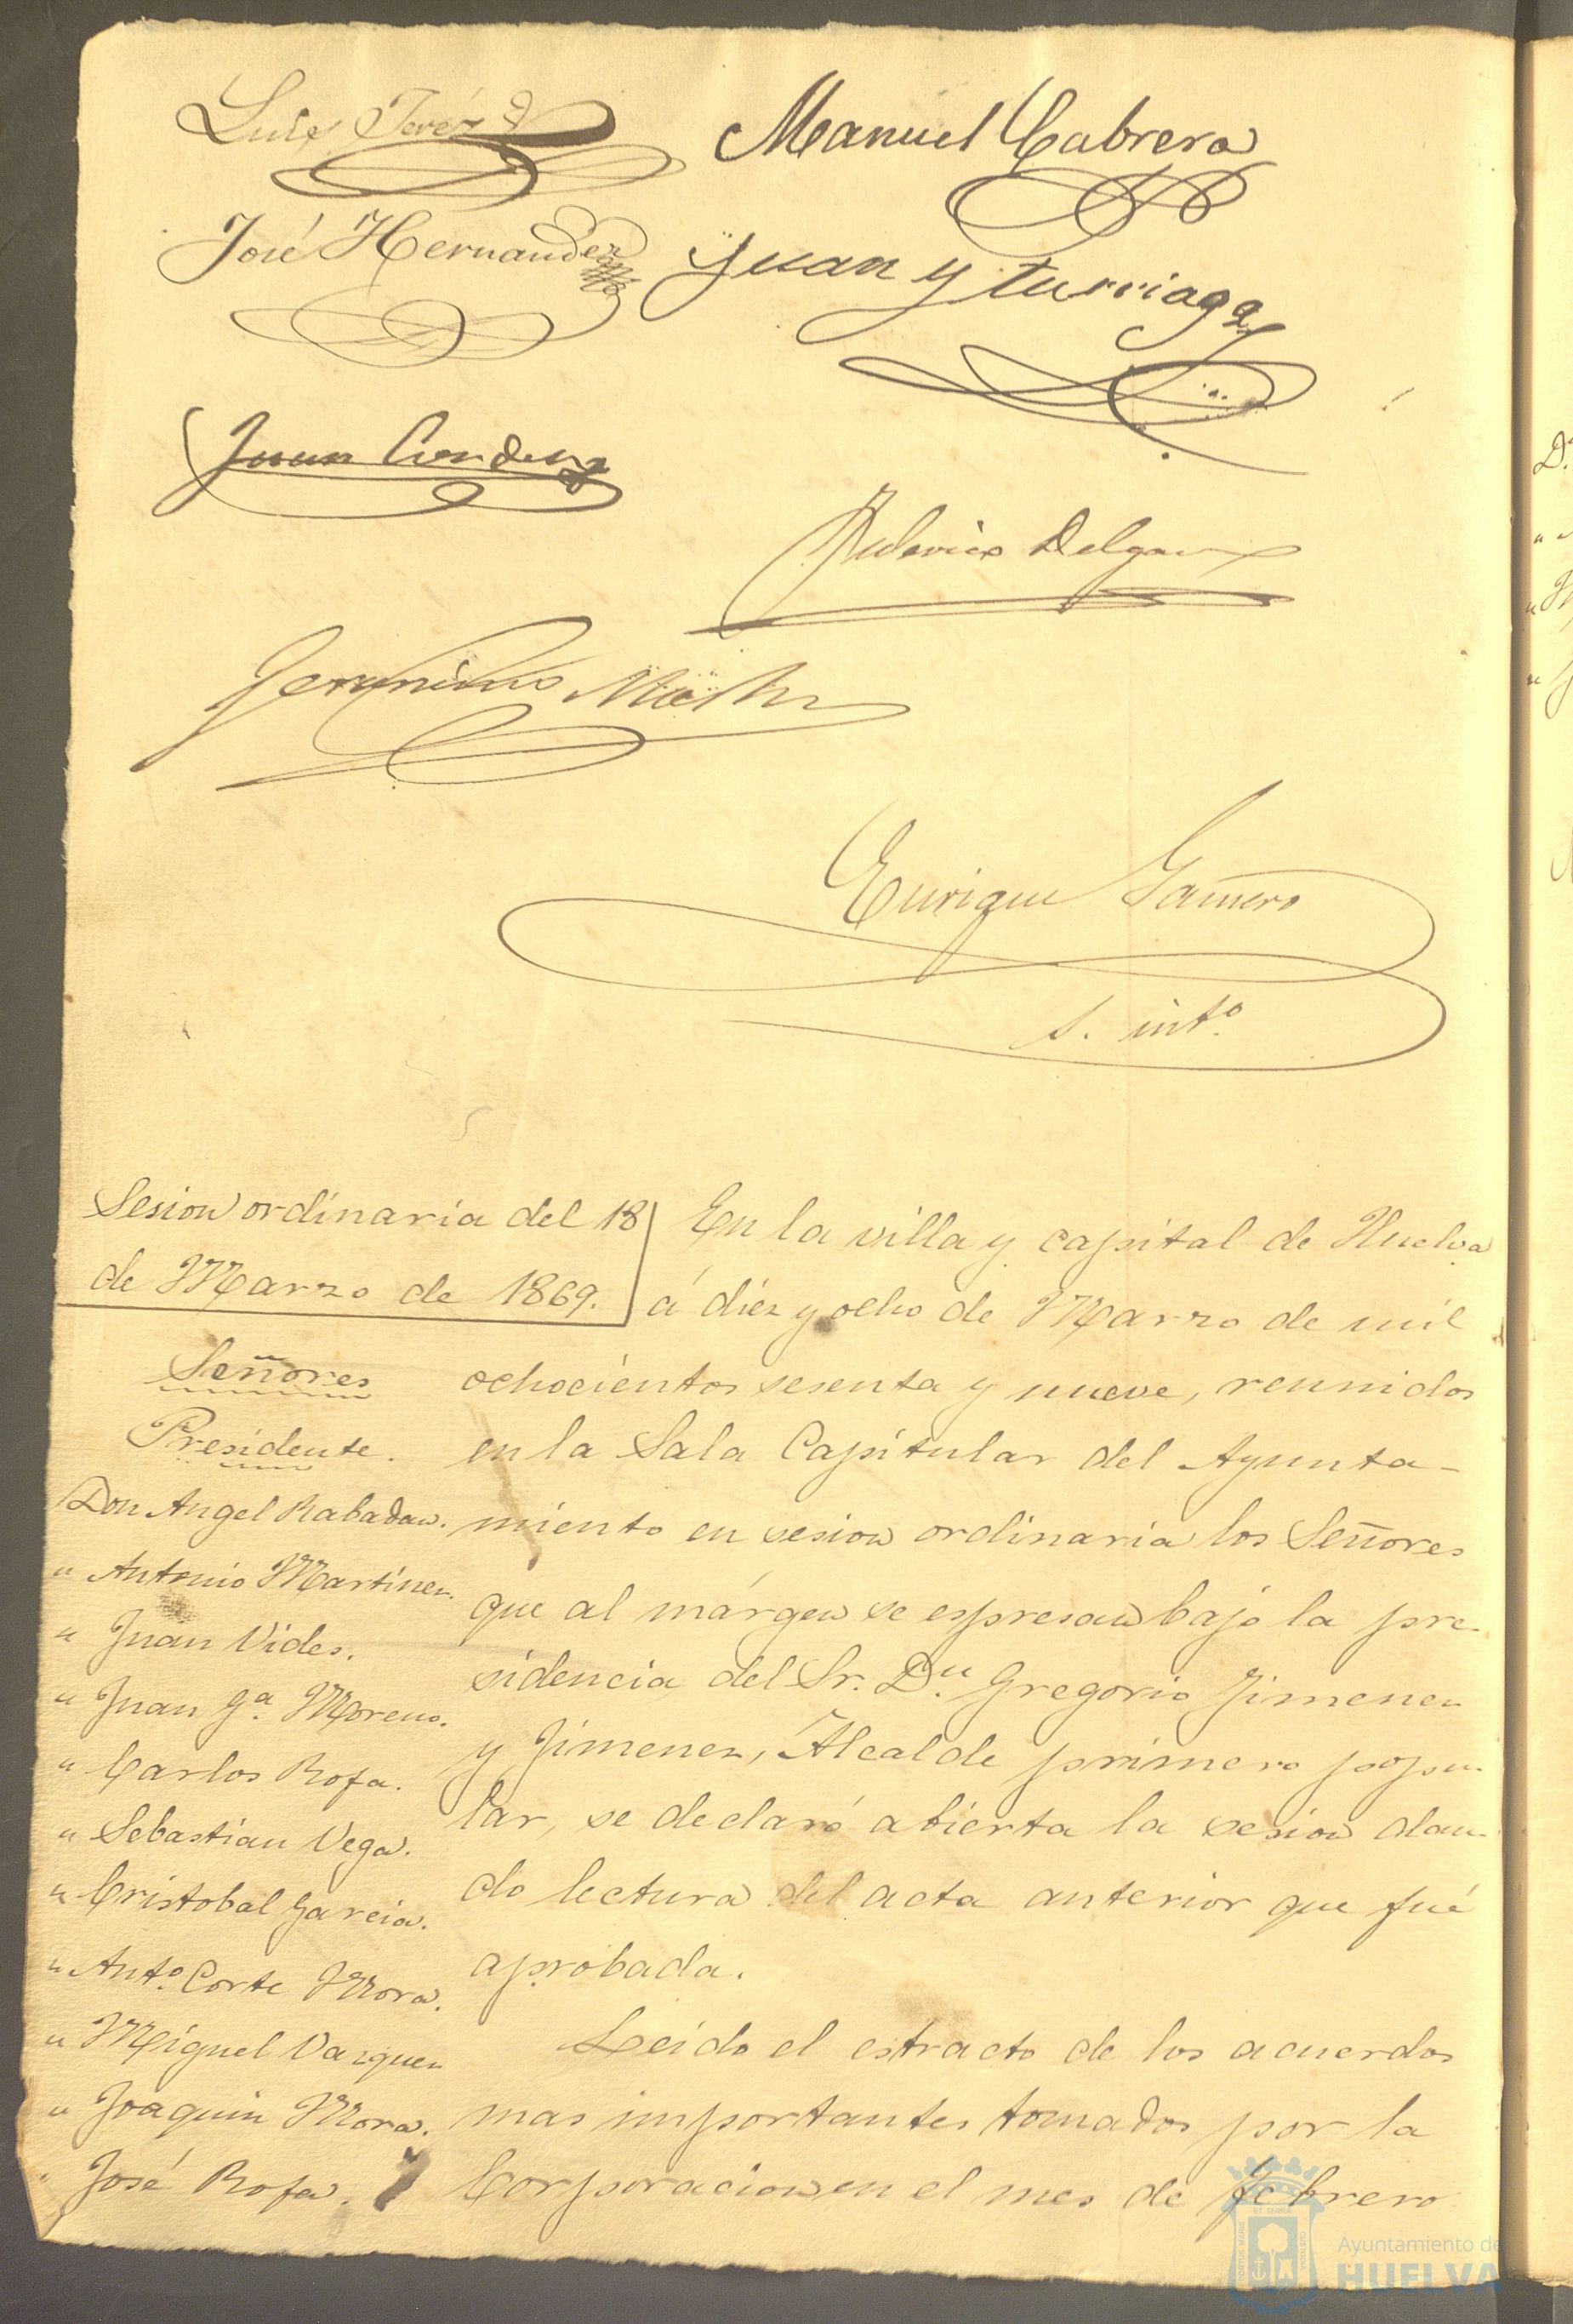 Luis Jeréz
Manuel Cabrera
José Hernandez
Juan Yturriaga
Juan
Federico Delgado
Jeronimo
Enrique Gamero
s. int.º
Sesion ordinaria del 18
de Marzo de 1869.
Señores
Presidente.
Don Angel Rabadan.
" Antonio Martinez.
" Juan Vides.
" Juan Gª. Moreno.
" Carlos Rofa.
" Sebastian Vega.
" Cristobal Garcia.
" Antº. Corte Mora.
" Miguel Vazquez
" Joaquin Mora.
" José Rofa.
En la villa y capital de Huelva
á diez y ocho de Marzo de mil
ochocientos sesenta y nueve, reunidos
en la Sala Capitular del Ayunta-
miento en sesion ordinaria los Señores
que al márgen se espresan bajo la pre-
sidencia del Sr. Dn. Gregorio Jimenez
y Jimenez, Alcalde primero popu-
lar, se declaró abierta la sesion dan-
do lectura del acta anterior que fué
aprobada.
Leido el estracto de los acuerdos
mas importantes tomados por la
Corporacion en el mes de Febrero
Ayuntamiento de
HUELVA